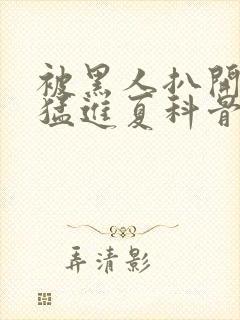 被黑人扒開
猛進夏科骨
弄清影